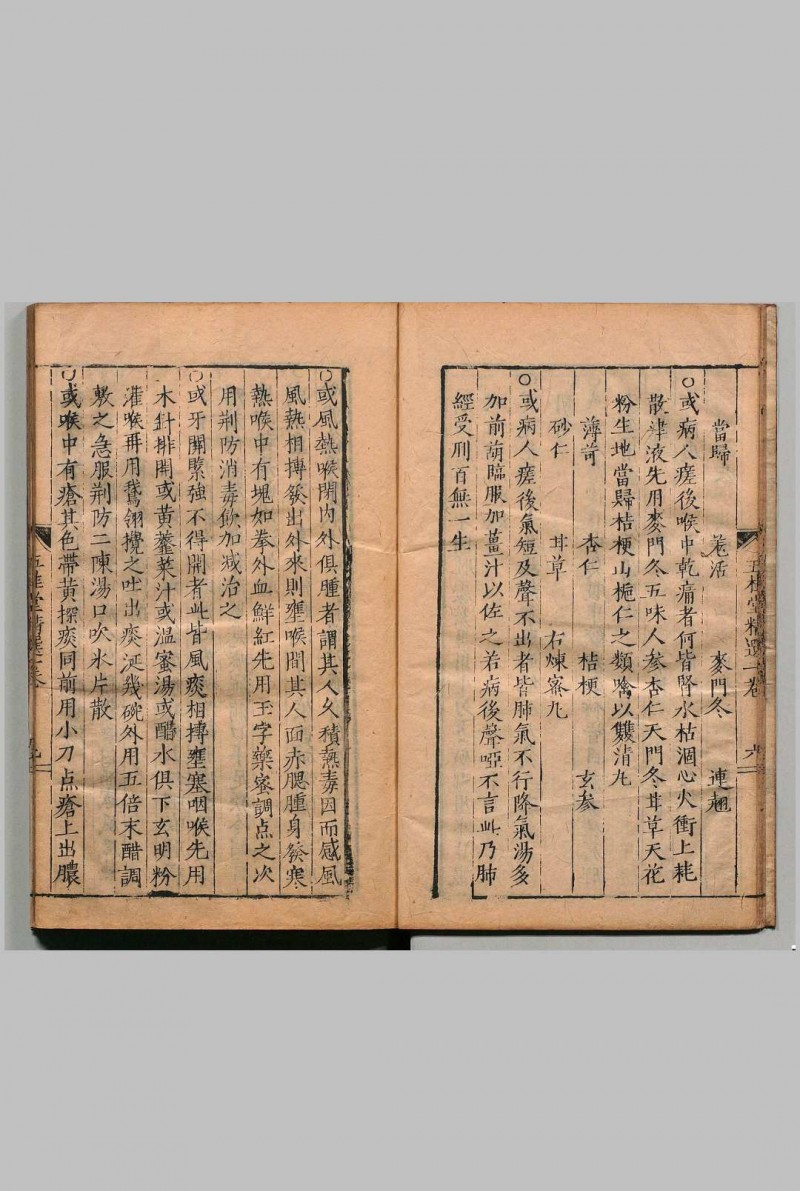 五桂堂精選一卷　六
當歸　羗活　麥門冬　連翹
○或病人瘥後喉中乾痛者何皆腎水枯涸心火衝上耗
散津液先用麥門冬五味人參杏仁天門冬甘草天花
粉生地當歸桔梗山梔仁之類噙以雙清九
薄荷　杏仁　桔梗　玄參
砂仁　甘草　右煉宻九
○或病人瘥後氣短及聲不出者皆肺氣不行降氣湯多
加前葫臨服加薑汁以佐之若病後聲啞不言此乃肺
經受刑百無一生
○或風熱喉閉内外俱腫者謂其人久積熱毒因而感風
風熱相摶發出外來則壅喉間其人面赤腮腫身發寒
熱喉中有塊如拳外血鮮紅先用玉字藥宻調点之次
用荆防消毒飲加减治之
○或牙關緊強不得開者此皆風痰相摶壅塞咽喉先用
木針排開或黄虀菜汁或温蜜湯或醋水俱下玄明粉
灌喉再用鵞翎攪之吐出痰涎幾碗外用五倍末醋調
敷之急服荆防二陳湯口吹氷片散
○或喉中有瘡其色帶黄探痰同前用小刀点瘡上出膿